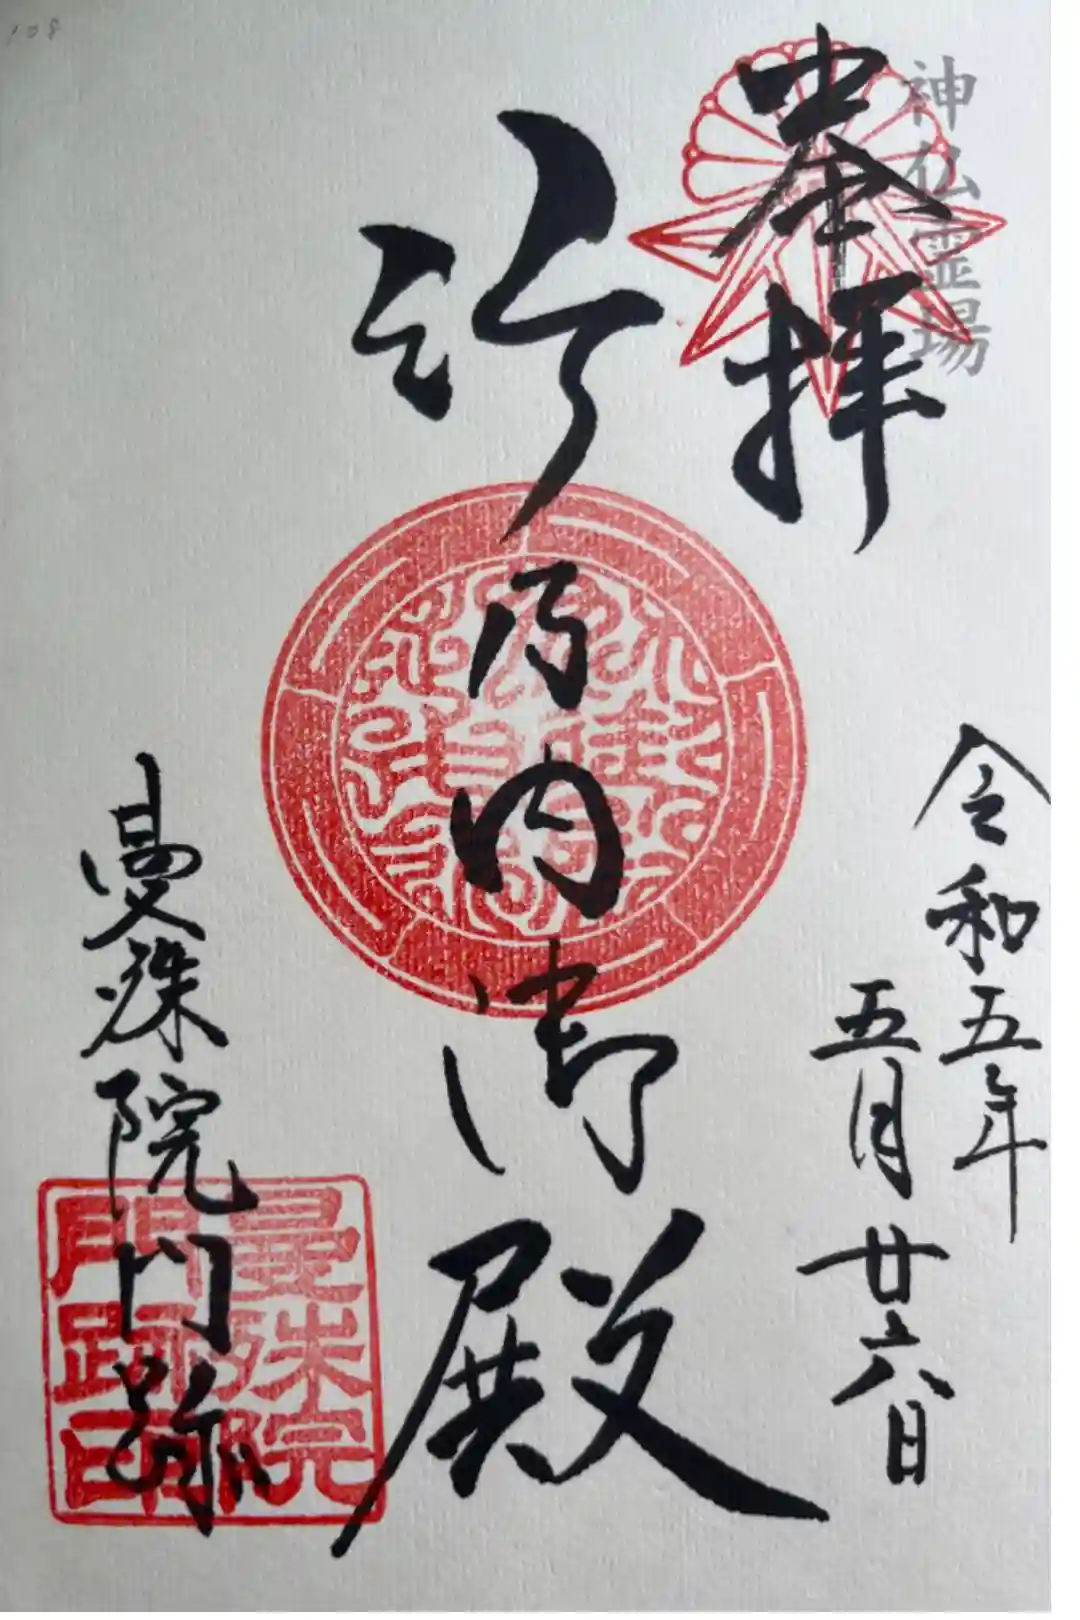 神仏霊場
奉拝
令和五年
五月廿六日
竹乃内御殿
曼殊院門跡
曼殊院
門跡印
108